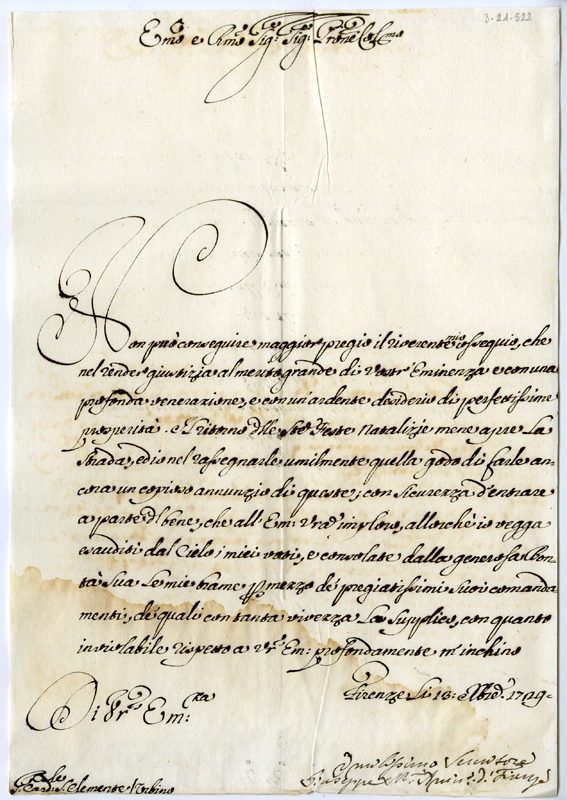 3-2A-522
Emo e Rmo Sig.r Sig.r Prone Colmo
Non può conseguire maggior pregio il riverente mio ossequio, che
nel render giustizia al merito grande di Vostr' Eminenza e con una
profonda venerazione, e con un'ardente desiderio di perfettissime
prosperità. e Il ritorno d'lle Ste Feste Natalizie me ne apre La
Strada, ed io nel rassegnarle umilmente quella godo di farle an-
cora un copioso annunzio di queste; con Sicurezza d'entrare
a parte d'l bene, che all' Em: Vra imploro, allorchè io vegga
esauditi dal Cielo i miei voti, e consolate dalla generosa Bon-
tà Sua Le mie brame p mezzo de' pregiatissimi Suoi comanda
menti, de' quali con tanta vivezza La Supplico, con quanto
inviolabile rispetto a Vr'a Em: profondamente m'inchino
Firenze Li 18: Xbre 1729-
Di Vra Em:za
Umilissimo Servitore
Giuseppe M.a
S. Clemente Urbino